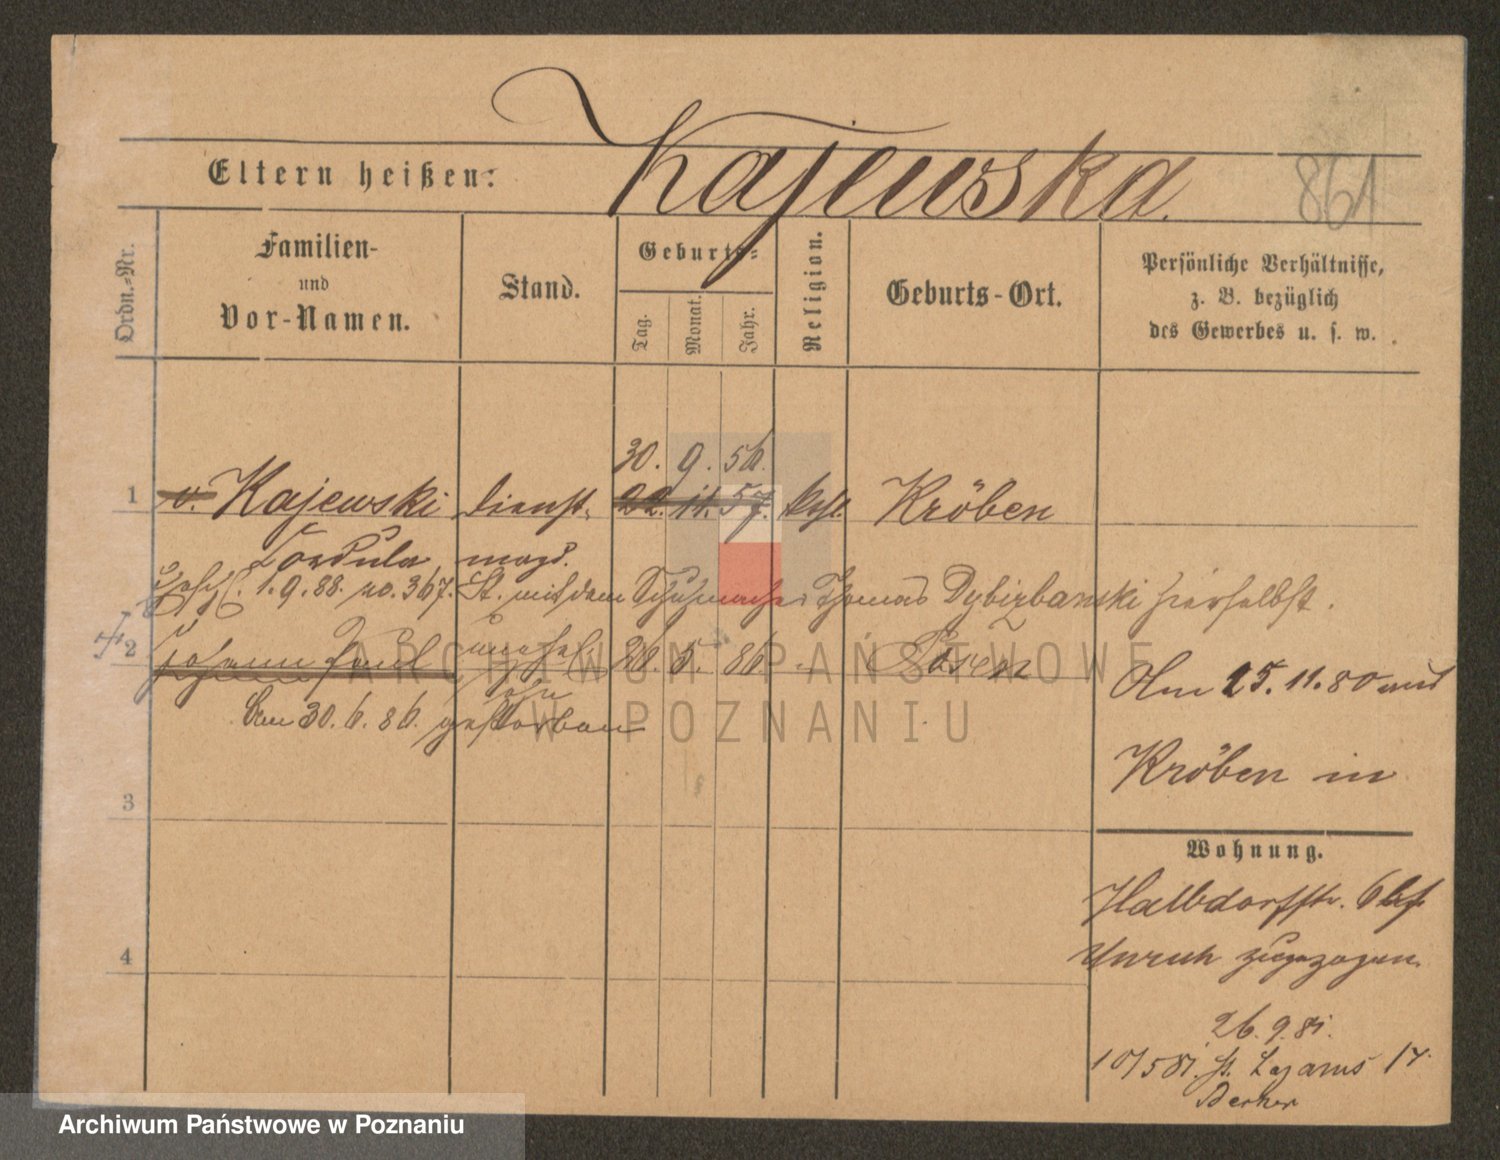 Kajewska.
Eltern heißen:
861
Ordn.-Nr.
Familien-
und
Vor-Namen.
Stand.
Geburts-
Tag.
Monat.
Jahr.
Religion.
Geburts-Ort.
Persönliche Verhältnisse,
z. B. bezüglich
des Gewerbes u. s. w.
30. 9. 56.
1 v. Kajewski Dienst- 22. 11. 57. kath. Kröben
Cordula magd.
1.9.88. no. 367. St. mit dem Schuhmacher Thomas Dybizbanski hierselbst.
2 Johann Paul unehel. 28. 5. 86. Posen
Sohn
Am 30.6.86. gestorben
Am 25.11.80 aus
Kröben in
3
Wohnung.
Halbdorfstr. 6 bei
Unruh zugezogen.
4
26.9.81.
St. Lazarus 17
Archiwum Państwowe w Poznaniu
ARCHIWUM PAŃSTWOWE
W POZNANIU